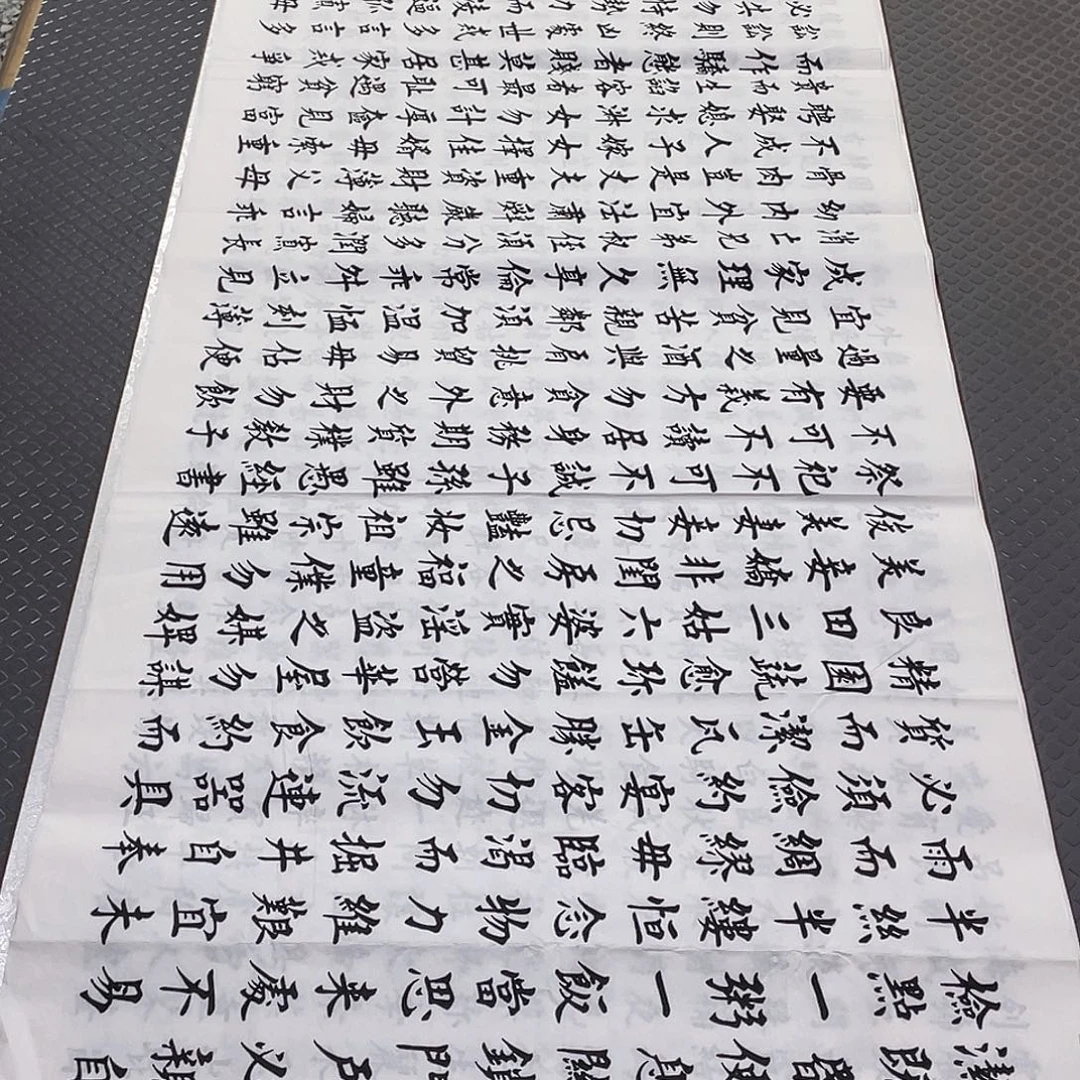 潔既昏便息關鎖門戶必親自
檢點一粥一飯當思來處不易
半絲半縷恒念物力維艱宜未
雨而綢繆毋臨渴而掘井自奉
必須儉約宴客切勿流連器具
質而潔瓦缶勝金玉飲食約而
精園蔬愈珍饈勿營華屋勿謀
良田三姑六婆實淫盜之媒婢
美妾嬌非閨房之福童僕勿用
俊美妻妾切忌豔妝祖宗雖遠
祭祀不可不誠子孫雖愚經書
不可不讀居身務期質樸教子
要有義方勿貪意外之財勿飲
過量之酒與肩挑貿易毋佔便
宜見貧苦親鄰須加溫恤刻薄
成家理無久享倫常乖舛立見
消亡兄弟叔侄須分多潤寡長
幼內外宜法肅辭嚴聽婦言乖
骨肉豈是丈夫重資財薄父母
不成人子嫁女擇佳婿毋索重
聘娶媳求淑女勿計厚奩見富
貴而生諂容者最可恥遇貧窮
而作驕態者賤莫甚居家戒爭
訟訟則終凶處世戒多言言多
必失勿恃勢力而凌逼孤寡毋